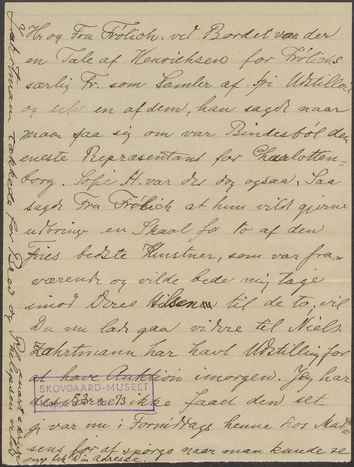 Hr og Fru Frölich. ved Bordet var der
en Tale af Henrichsen for Frölichs
særlig Fr. som Samler af
og en af dem, han sagde naar
man saa sig om var Bindesböl den
eneste Repræsentant for Charlotten-
borg. Sofie H. var der dog ogsaa. Saa
sagde Fru Frölich at hun vilde gjerne
udbringe en Skaal for to af den
Fries bedste Kunstner, som var fra-
værende og vilde bede mig tage
imod Deres Hilsen til de to, vil
Du nu lade gaa videre til Niels.
Zahrtmann har havt Udstilling for
at have Auktion imorgen. Jeg har
desværre ikke faaet den set
gi var nu i Formiddags henne hos Mad-
sens for at spørge naar man kunde se
og fik Din Adresse.
SKOVGAARD-MUSEET
Zahrtmann takkede for Brev og